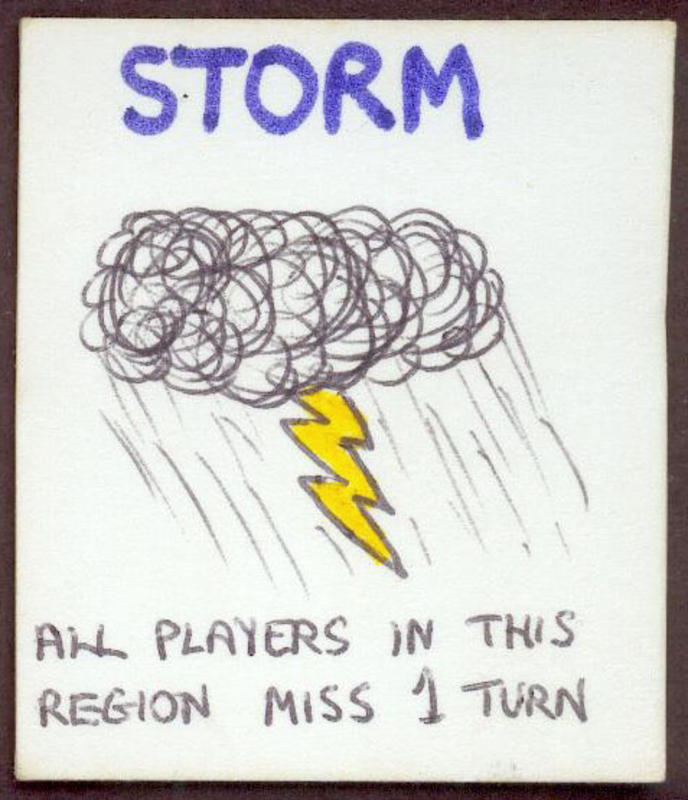 STORM
ALL PLAYERS IN THIS
REGION MISS 1 TURN